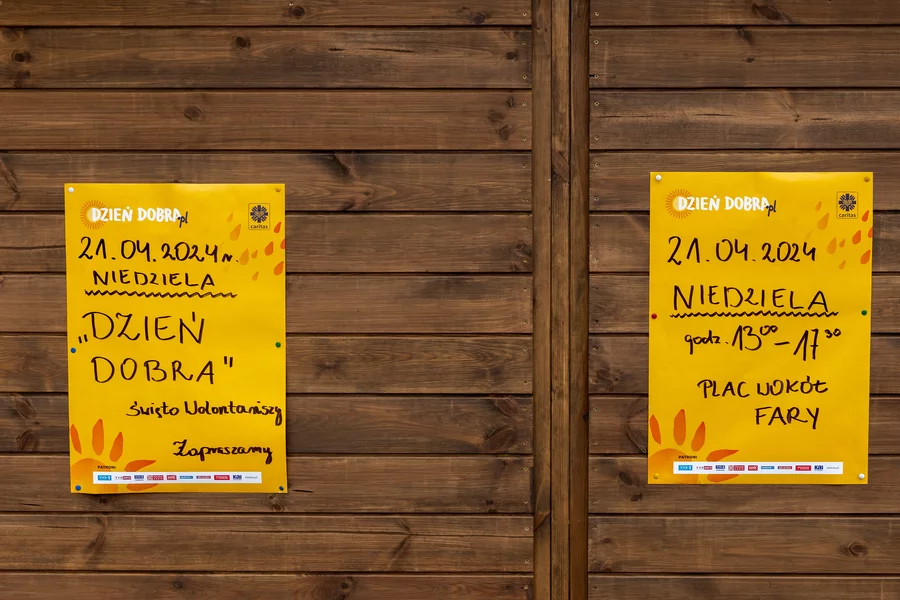 DZIEŃ DOBRA.pl
caritas
21.04.2024r.
NIEDZIELA
„DZIEŃ
DOBRA"
Święto Wolontariuszy
Zapraszamy
PATRONI
DZIEŃ DOBRA.pl
caritas
21.04.2024
NIEDZIELA
godz. 13⁰⁰-17³⁰
PLAC WOKÓŁ
FARY
PATRONI